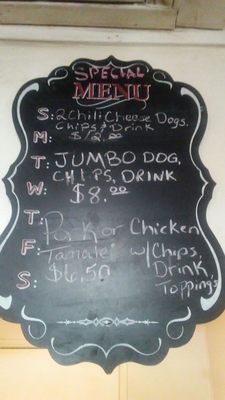 SPECIAL
MENU
S: 2 Chili Cheese Dogs,
Chips & Drink
M: $12.00
T: JUMBO DOG,
CHIPS, DRINK
W: $8.00
T:
Pork or Chicken
F: Tamale w/ Chips
S: $6.50 Drink
Topping's